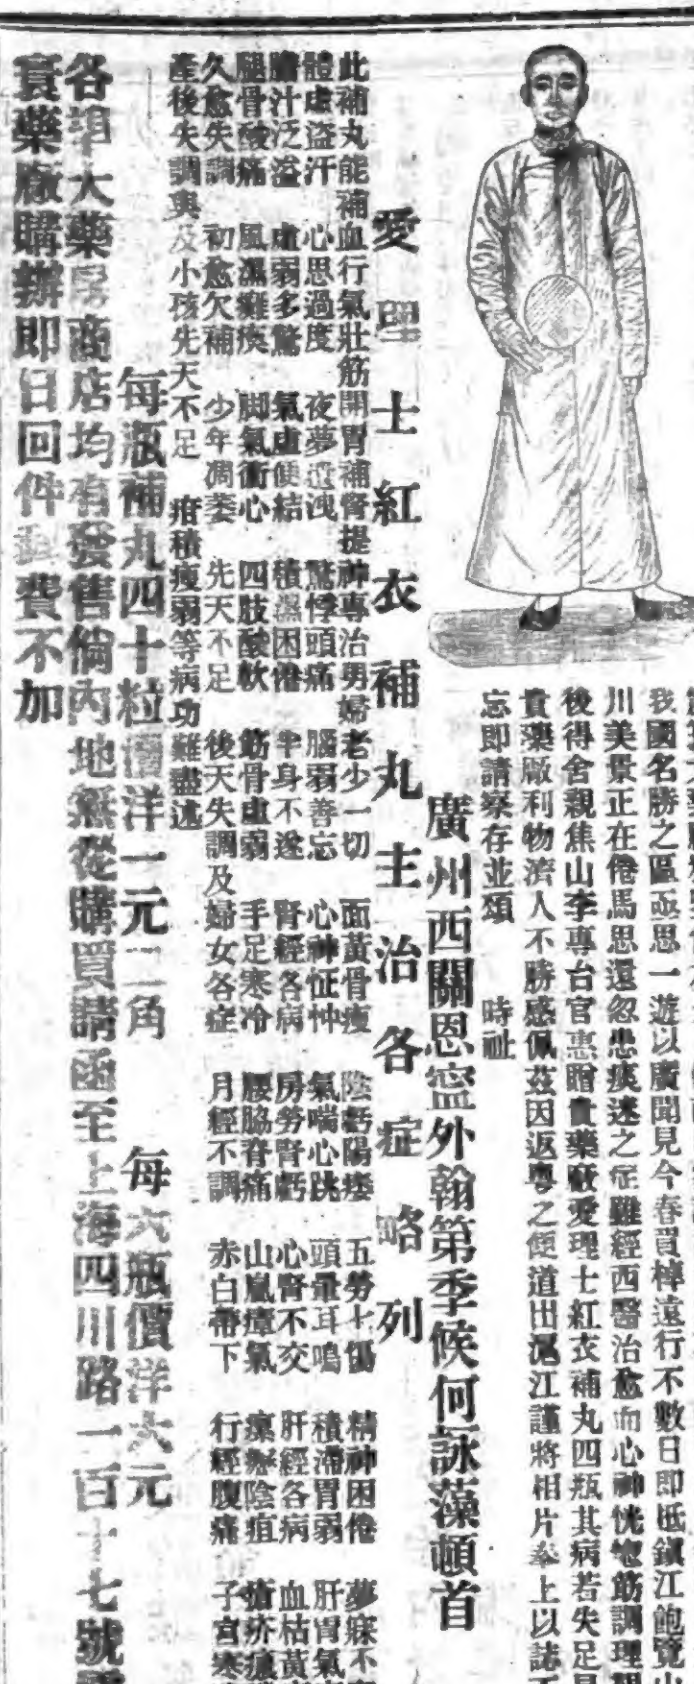 我國名勝之區亟思一遊以廣聞見今春買棹遠行不數日即抵鎮江飽覽山
川美景正在倦馬思還忽患痰迷之症雖經西醫治愈而心神恍惚筋調理
後得舍親焦山李專台官惠贈貴藥廠愛理士紅衣補丸四瓶其病若失足
貴藥廠利物濟人不勝感佩茲因返粵之便道出滬江謹將相片奉上以誌不
忘即請察存並頌 時祉
廣州西關恩寧外翰第季候何詠藻頓首
愛理士紅衣補丸主治各症略列
此補丸能補血行氣壯筋開胃補腎提神專治男婦老少一切 面黃骨瘦 陰虧陽痿 五勞七傷 精神困倦 夢寐不
體虛盜汗 心思過度 夜夢遺洩 驚悸頭痛 腦弱善忘 心神怔忡 氣喘心跳 頭暈耳鳴 積滯胃弱 肝胃氣
膽汁泛溢 虛弱多驚 氣虛便結 積濕困倦 半身不遂 腎經各病 房勞腎虧 心腎不交 肝經各病 血枯黃
腿骨酸痛 風濕癱瘓 脚氣衝心 四肢酸軟 筋骨虛弱 手足寒冷 腰脇脊痛 山嵐瘴氣 陰疽 瘡疥
久愈失調 初愈欠補 少年凋萎 先天不足 後天失調及婦女各症 月經不調 赤白帶下 行經腹痛 子宮寒
產後失調與及小孩先天不足 疳積瘦弱等病功難盡述
每瓶補丸四十粒價洋一元二角 每六瓶價洋六元
各埠大藥房商店均有發售倘內地無從購買請函至上海四川路一百十七號
寶藥廠購辦即日回件郵費不加